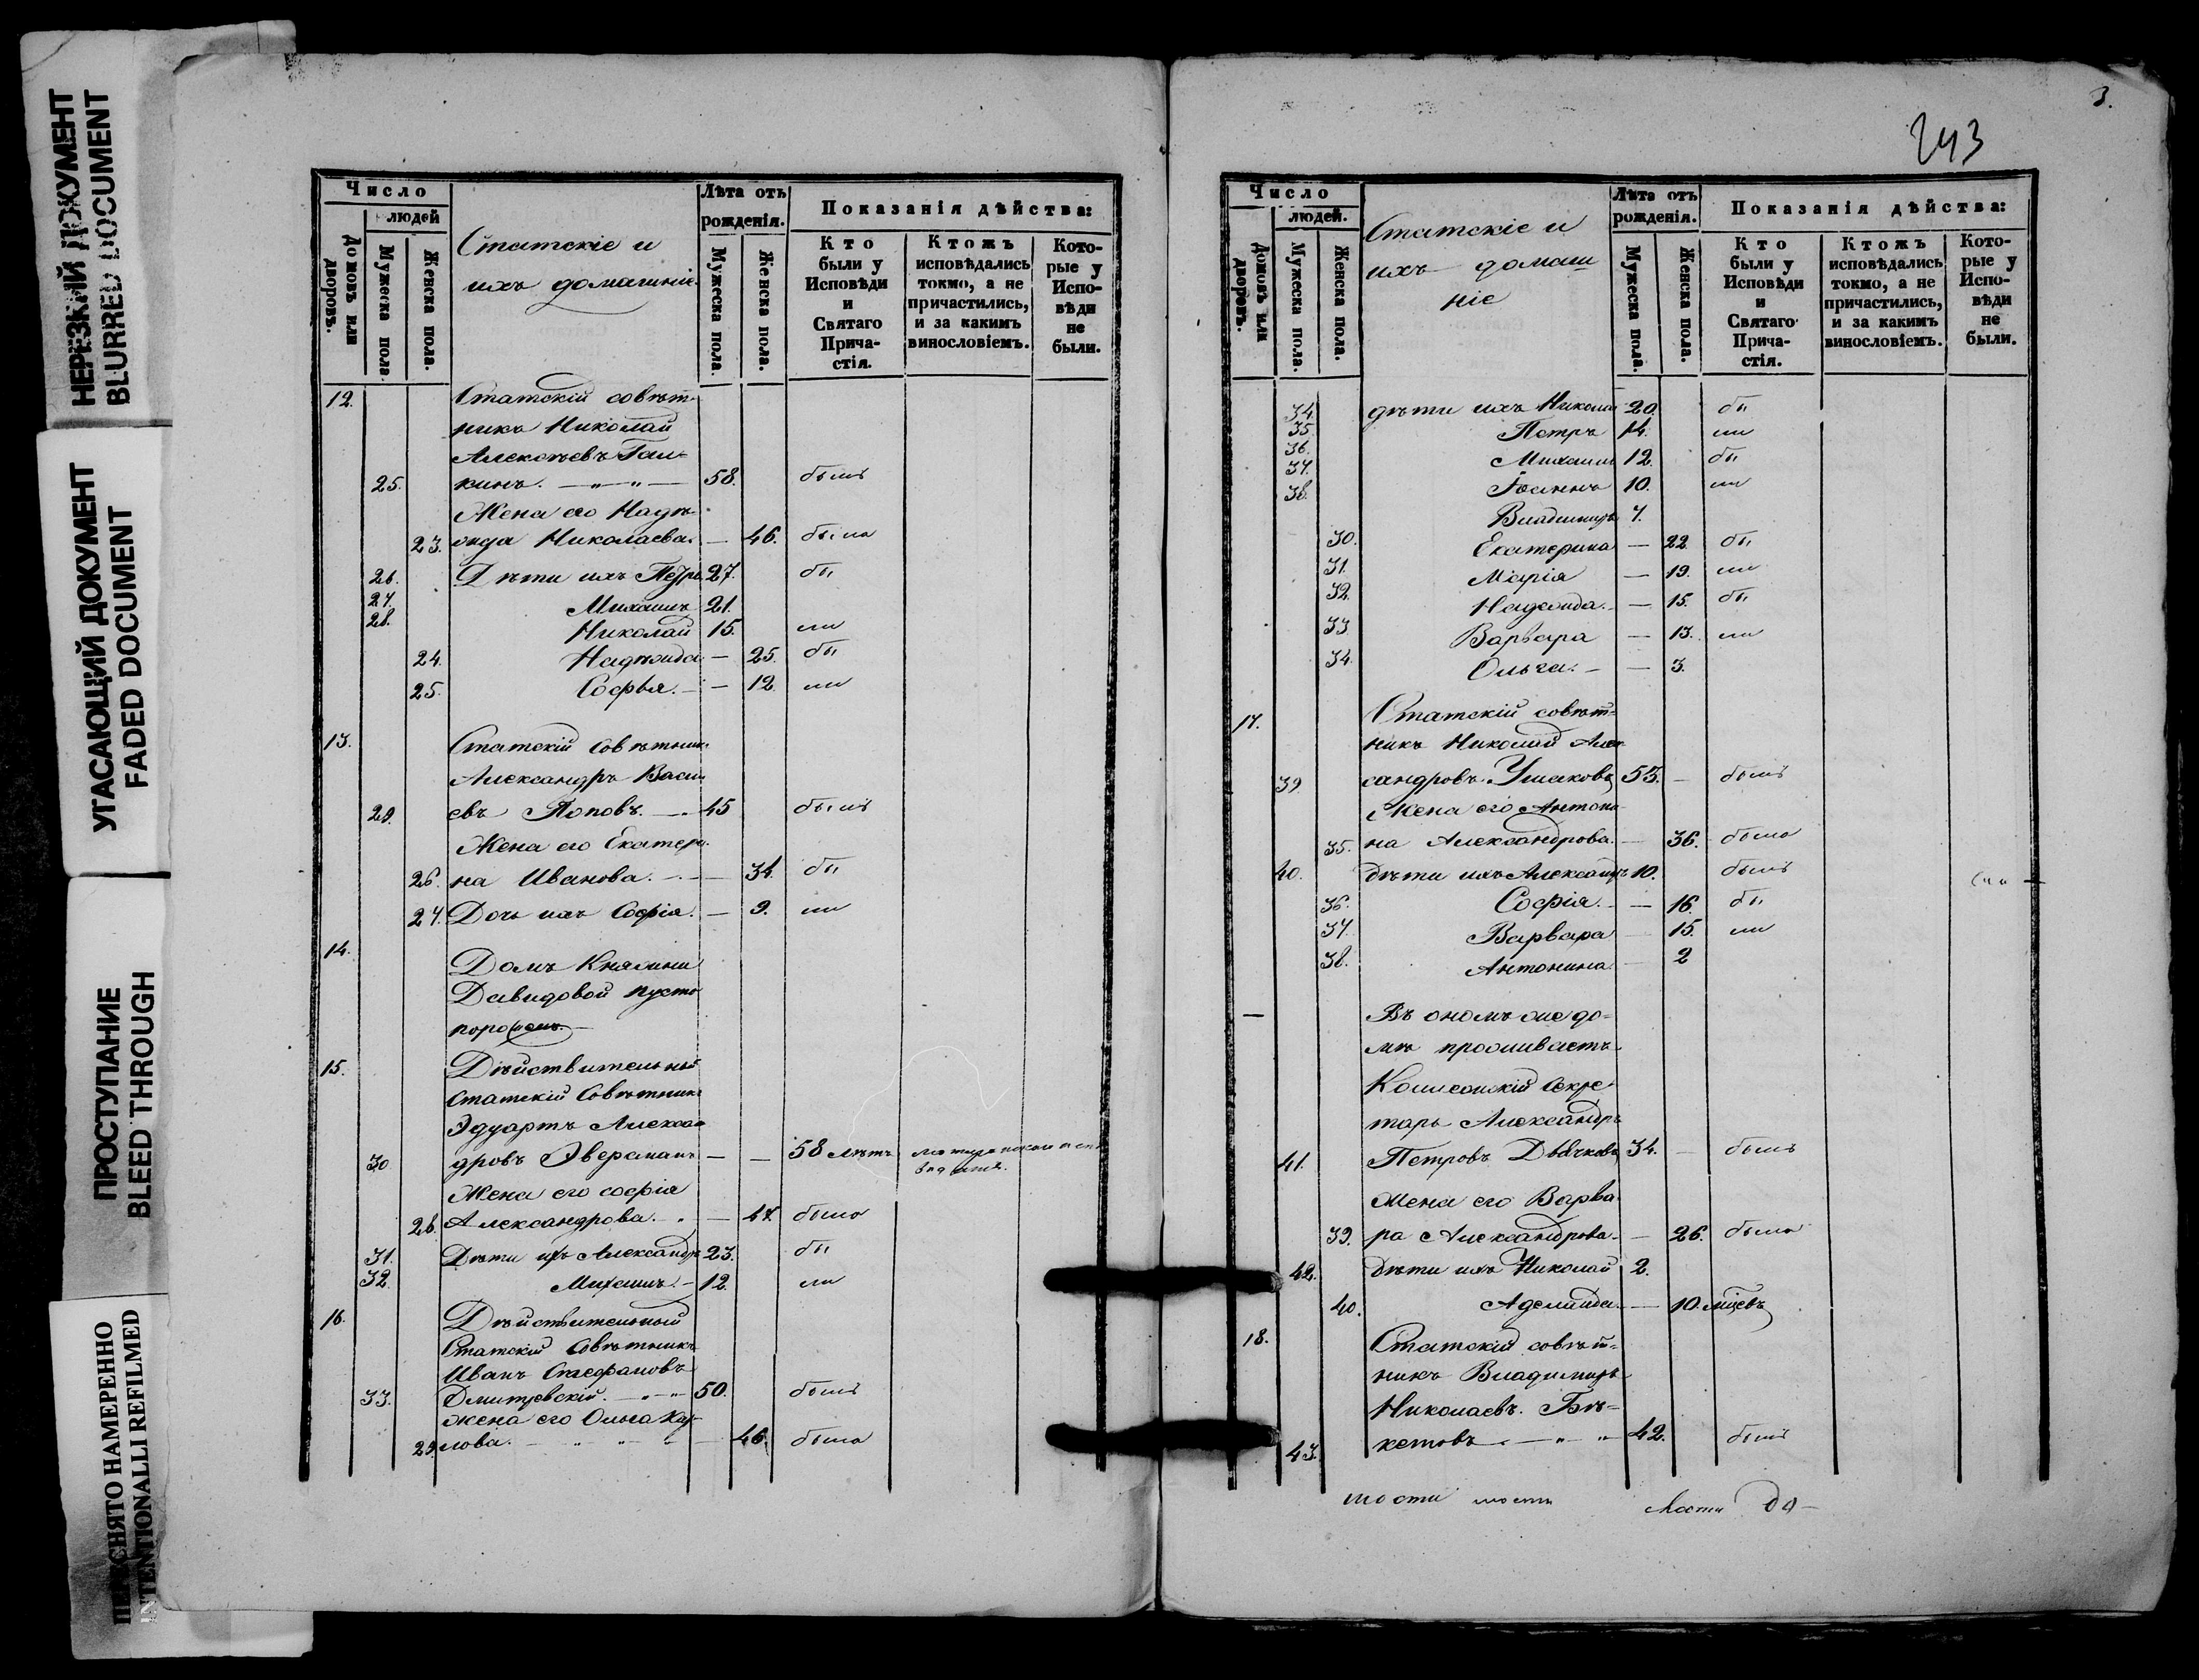 НЕРЕЗКИЙ ДОКУМЕНТ
BLURRED DOCUMENT
УГАСАЮЩИЙ ДОКУМЕНТ
FADED DOCUMENT
ПРОСТУПАНИЕ
BLEED THROUGH
ПЕРЕСНЯТО НАМЕРЕННО
INTENTIONALLI REFILMED
Число
людей
Домовъ или дворовъ.
Мужеска пола.
Женска пола.
Статскіе и
ихъ домашніе.
Лѣта отъ рожденія.
Мужеска пола.
Женска пола.
Показанія дѣйства:
Кто были у Исповѣди и Святаго Причастія.
Ктожъ исповѣдались токмо, а не причастились, и за какимъ винословіемъ.
Которые у Исповѣди не были.
12. Статскій совѣт-
никъ Николай
Алексѣевъ Гал-
25. кинъ. 58. былъ
Жена его Надѣ-
23. жда Николаева. — 46. была
26. Дѣти ихъ Петръ 27. бы
27. Михаилъ 21.
28. Николай 15. ли
24. Надѣжда — 25. бы
25. Софья. — 12. ли
13. Статскій Совѣтникъ
Александръ Васил
29. евъ Поповъ. — 45 былъ
Жена его Екатери-
26. на Иванова. — 34. бы
27. Дочь ихъ Софія. — 9. ли
14. Домъ Княгини
Давидовой пусто
порожнъ.
15. Дѣйствительный
Статскій Совѣтникъ
Эдуартъ Алексан
30. дровъ Эверсманъ — — 58 лѣтъ
Жена его софія
28. Александрова. — 47. была
31. Дѣти ихъ Александръ 23. бы
32. Михаилъ. — 12. ли
16. Дѣйствительный
Статскій Совѣтникъ
Иванъ Стефановъ
33. Дмитревскій. 50. былъ
жена его Ольга Кар-
29. лова. — 46. была
3.
243
Число
людей.
Домовъ или дворовъ.
Мужеска пола.
Женска пола.
Статскіе и
ихъ домаш
ніе
Лѣта отъ рожденія.
Мужеска пола.
Женска пола.
Показанія дѣйства:
Кто были у Исповѣди и Святаго Причастія.
Ктожъ исповѣдались токмо, а не причастились, и за какимъ винословіемъ.
Которые у Исповѣди не были.
34. дѣти ихъ Николай 20. бы
35. Петръ 14. ли
36. Михаилъ 12. бы
37. Іоаннъ 10. ли
38. Владимиръ 7.
30. Екатерина — 22. бы
31. Марія — 19. ли
32. Надежда. — 15. бы
33 Варвара — 13. ли
34. Ольга. — 3.
17. Статскій совѣт-
никъ Николай Алек
39. сандровъ Ушаковъ 55. — былъ
Жена его Антони-
35. на Александрова. — 36. была
40. дѣти ихъ Александръ 10. былъ
36. Софія. — 16. бы
37. Варвара — 15. ли
38. Антонина — 2
— Въ ономъ же до-
мѣ проживаетъ
Колежскій Секре
тарь Александръ
41. Петровъ Дьячковъ 34. — былъ
Жена его Варва
39. ра Александрова. — 26. была
42. дѣти ихъ Николай 2.
40. Аделаида. — 10. мѣсцевъ
18. Статскій совѣт-
никъ Владимиръ
Николаевъ Бе-
43. кетовъ. 42. былъ